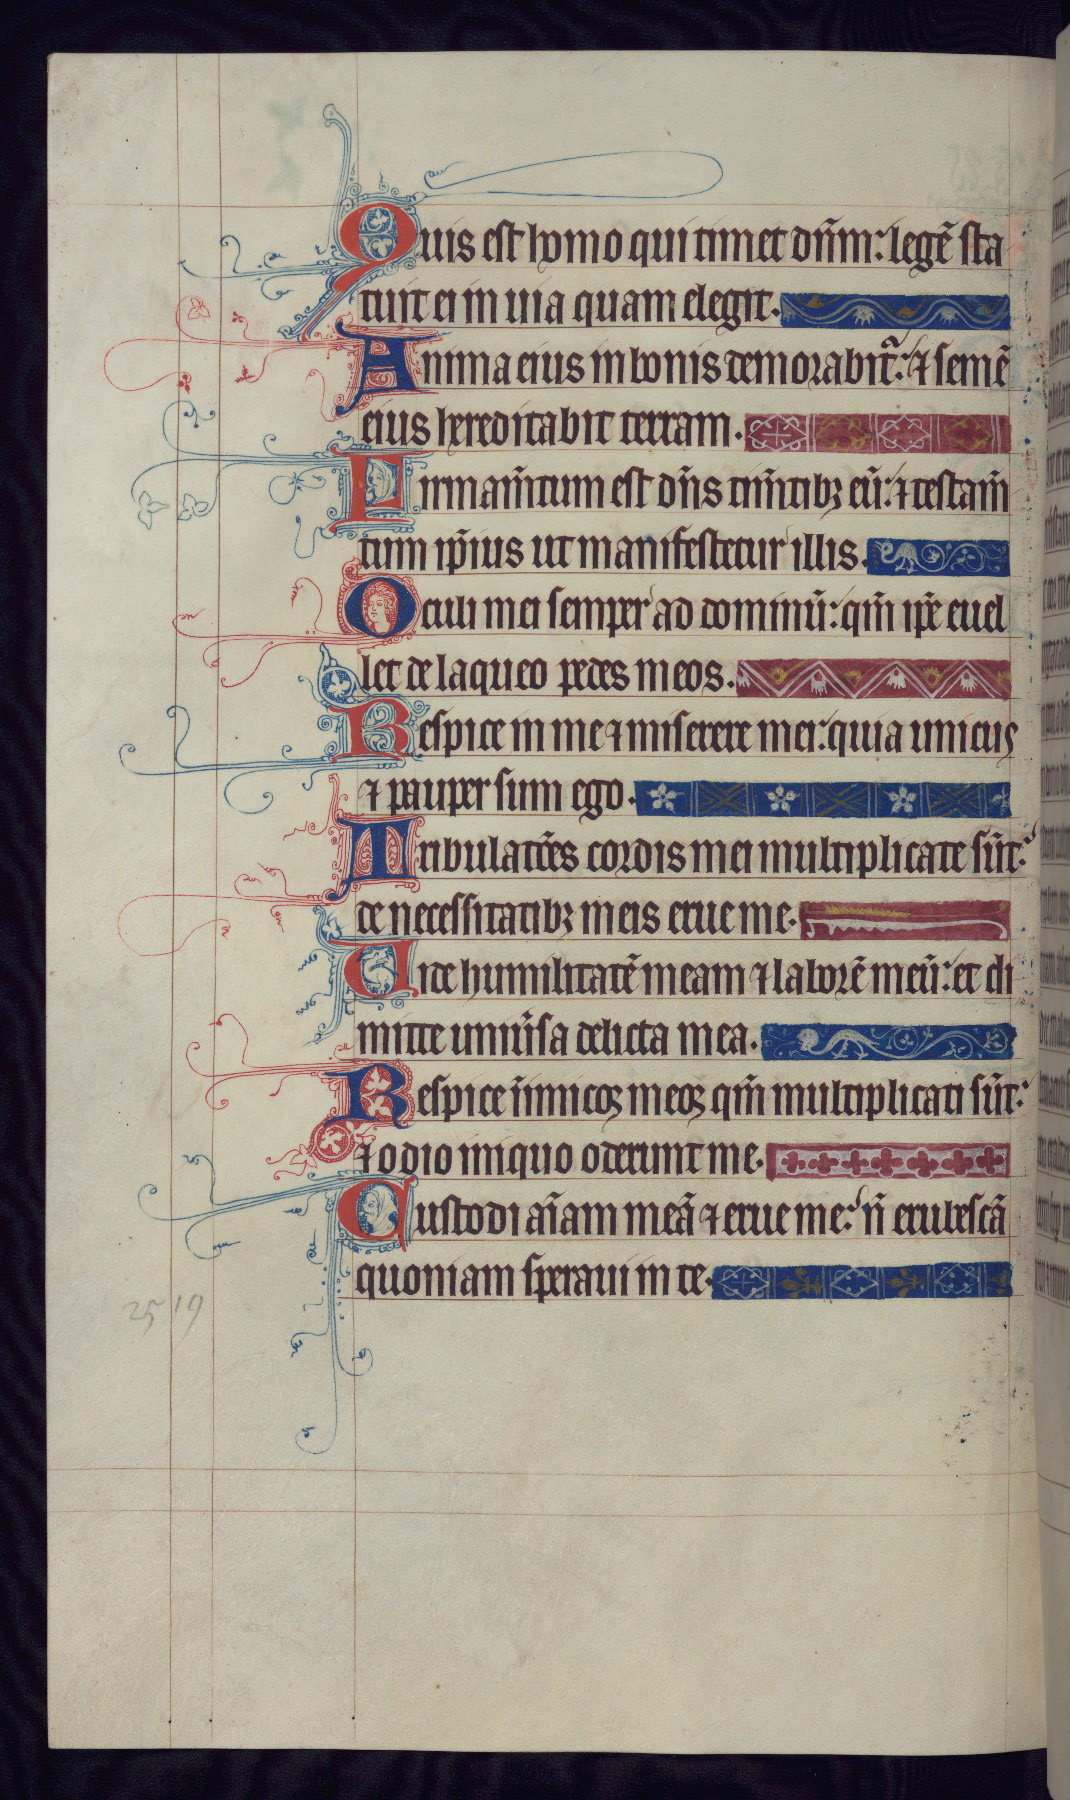 Quis est homo qui timet dñm: legẽ sta
tuit ei in uia quam elegit.
Anima eius in bonis demorabitᷓ: ⁊ semẽ
eius hereditabit terram.
Firmam̃tum est dñs tim̃tibꝫ eũ: ⁊ testam̃
tum ip̃ius ut manifestetur illis.
Oculi mei semper ad dominũ: qm̃ ip̃e euel
let de laqueo pedes meos.
Respice in me ⁊ miserere mei: quia unicus
⁊ pauper sum ego.
Tribulatões cordis mei multiplicate sũt:
de necessitatibꝫ meis erue me.
Uide humilitatẽ meam ⁊ laborẽ meũ: et di
mitte uniũsa delicta mea.
Respice ĩimicoꝫ meoꝫ qm̃ multiplicati sũt:
⁊ odio iniquo oderunt me.
Custodi aĩam meã ⁊ erue me: ñ erubescã
quoniam speraui in te.
25 19